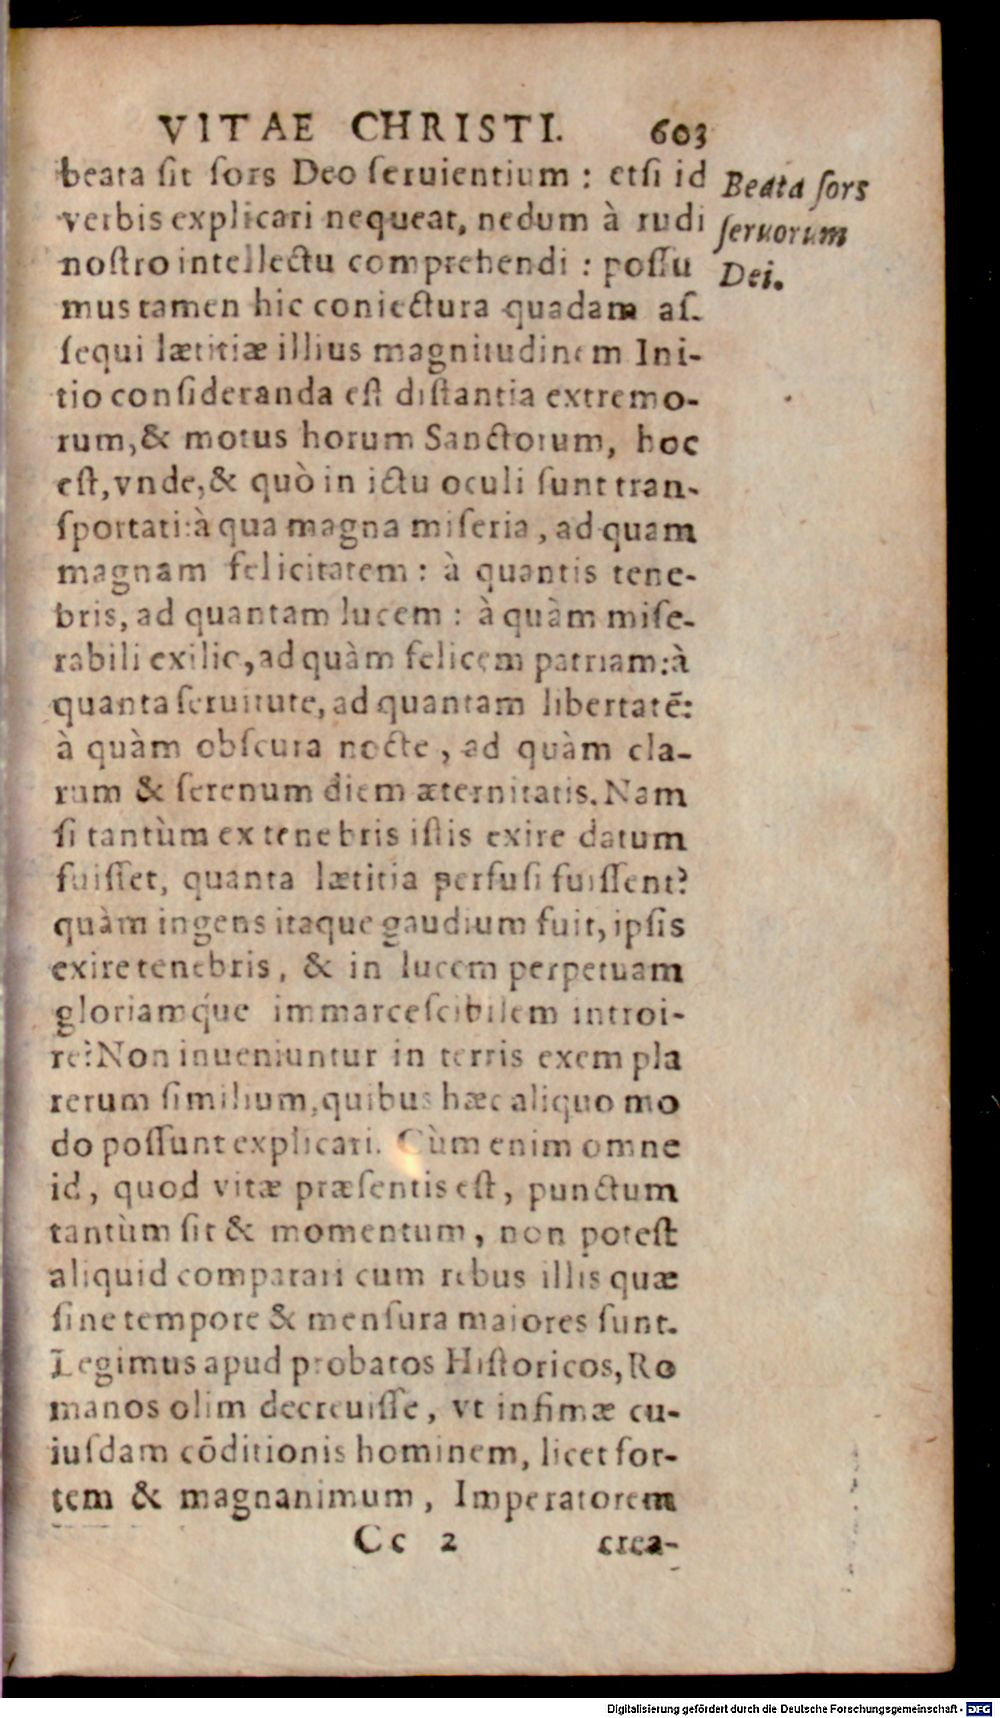 VITAE CHRISTI. 603
beata sit sors Deo seruientium : etsi id
verbis explicari nequeat, nedum à rudi
nostro intellectu comprehendi : possu
mus tamen hic coniectura quadam as-
sequi lætitiæ illius magnitudinem Ini-
tio consideranda est distantia extremo-
rum, & motus horum Sanctorum, hoc
est, vnde, & quò in ictu oculi sunt tran-
sportati: à qua magna miseria, ad quam
magnam felicitatem : à quantis tene-
bris, ad quantam lucem : à quàm mise-
rabili exilio, ad quàm felicem patriam: à
quanta seruitute, ad quantam libertatē:
à quàm obscura nocte, ad quàm cla-
rum & serenum diem æternitatis. Nam
si tantùm ex tenebris istis exire datum
fuisset, quanta lætitia perfusi fuissent?
quàm ingens itaque gaudium fuit, ipsis
exire tenebris, & in lucem perpetuam
gloriamq́ue immarcescibilem introi-
re? Non inueniuntur in terris exempla
rerum similium, quibus hæc aliquo mo
do possunt explicari. Cùm enim omne
id, quod vitæ præsentis est, punctum
tantùm sit & momentum, non potest
aliquid comparari cum rebus illis quæ
sine tempore & mensura maiores sunt.
Legimus apud probatos Historicos, Ro
manos olim decreuisse, vt infimæ cu-
iusdam cōditionis hominem, licet for-
tem & magnanimum, Imperatorem
Cc 2 crea-
Beata sors
seruorum
Dei.
Digitalisierung gefördert durch die Deutsche Forschungsgemeinschaft - DFG